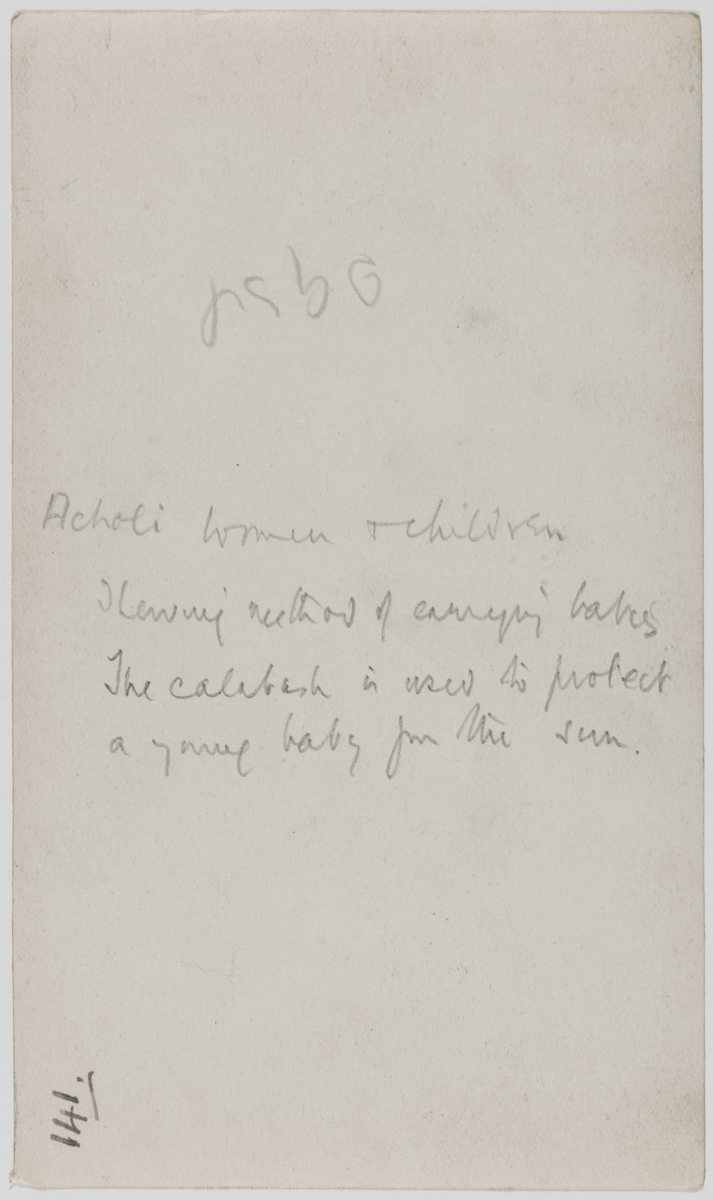 Acholi women & children
Shewing method of carrying babies
The calabash is used to protect
a young baby from the sun.
141.